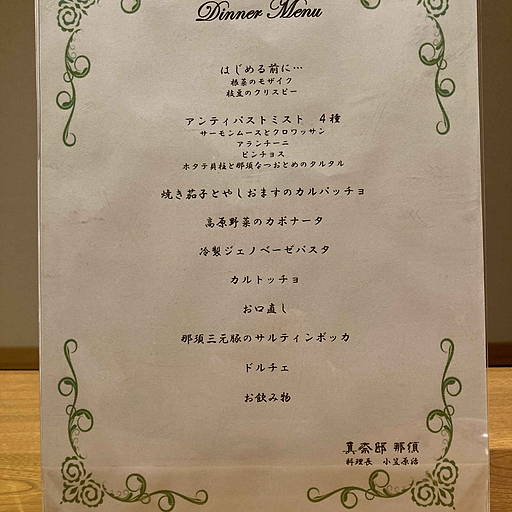 Dinner Menu
はじめる前に…
根菜のモザイク
枝豆のクリスピー
アンティパストミスト 4種
サーモンムースとクロワッサン
アランチーニ
ピンチョス
ホタテ貝柱と那須なつおとめのタルタル
焼き茄子とやしおますのカルパッチョ
高原野菜のカポナータ
冷製ジェノベーゼパスタ
カルトッチョ
お口直し
那須三元豚のサルティンボッカ
ドルチェ
お飲み物
真奈邸 那須
料理長 小笠原浩